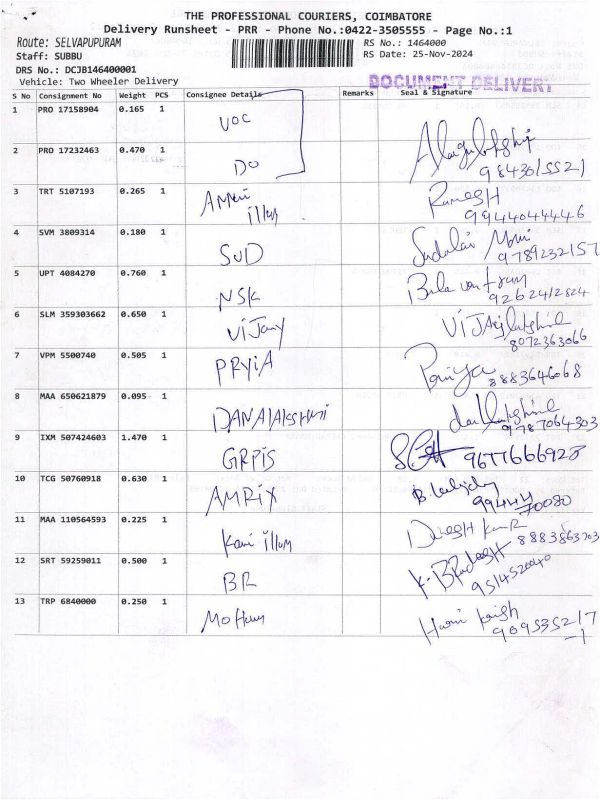 THE PROFESSIONAL COURIERS, COIMBATORE
Delivery Runsheet - PRR - Phone No.:0422-3505555 - Page No.:1
Route: SELVAPUPURAM RS No.: 1464000
Staff: SUBBU RS Date: 25-Nov-2024
DRS No.: DCJB146400001
Vehicle: Two Wheeler Delivery DOCUMENT DELIVERY
S No Consignment No Weight PCS Consignee Details Remarks Seal & Signature
1 PRO 17158904 0.165 1 VOC
2 PRO 17232463 0.470 1 DO
9843015521
3 TRT 5107193 0.265 1 illam Ramesh
9944044446
4 SVM 3809314 0.180 1 SUD Sudalai Mani
9789232157
5 UPT 4084270 0.760 1 NSK
9262412824
6 SLM 359303662 0.650 1 Vijay
8072363066
7 VPM 5500740 0.505 1 PRYIA Pariya
8883646068
8 MAA 650621879 0.095 1
9787064303
9 IXM 507424603 1.470 1 GRPIS 9677666928
10 TCG 50760918 0.630 1 AMRIX B.
99444
70080
11 MAA 110564593 0.225 1 Kani illam Dinesh Kumar
8883863703
12 SRT 59259011 0.500 1 BR K. Pradeesh
9514520040
13 TRP 6840000 0.250 1 Hari
909535217
-1